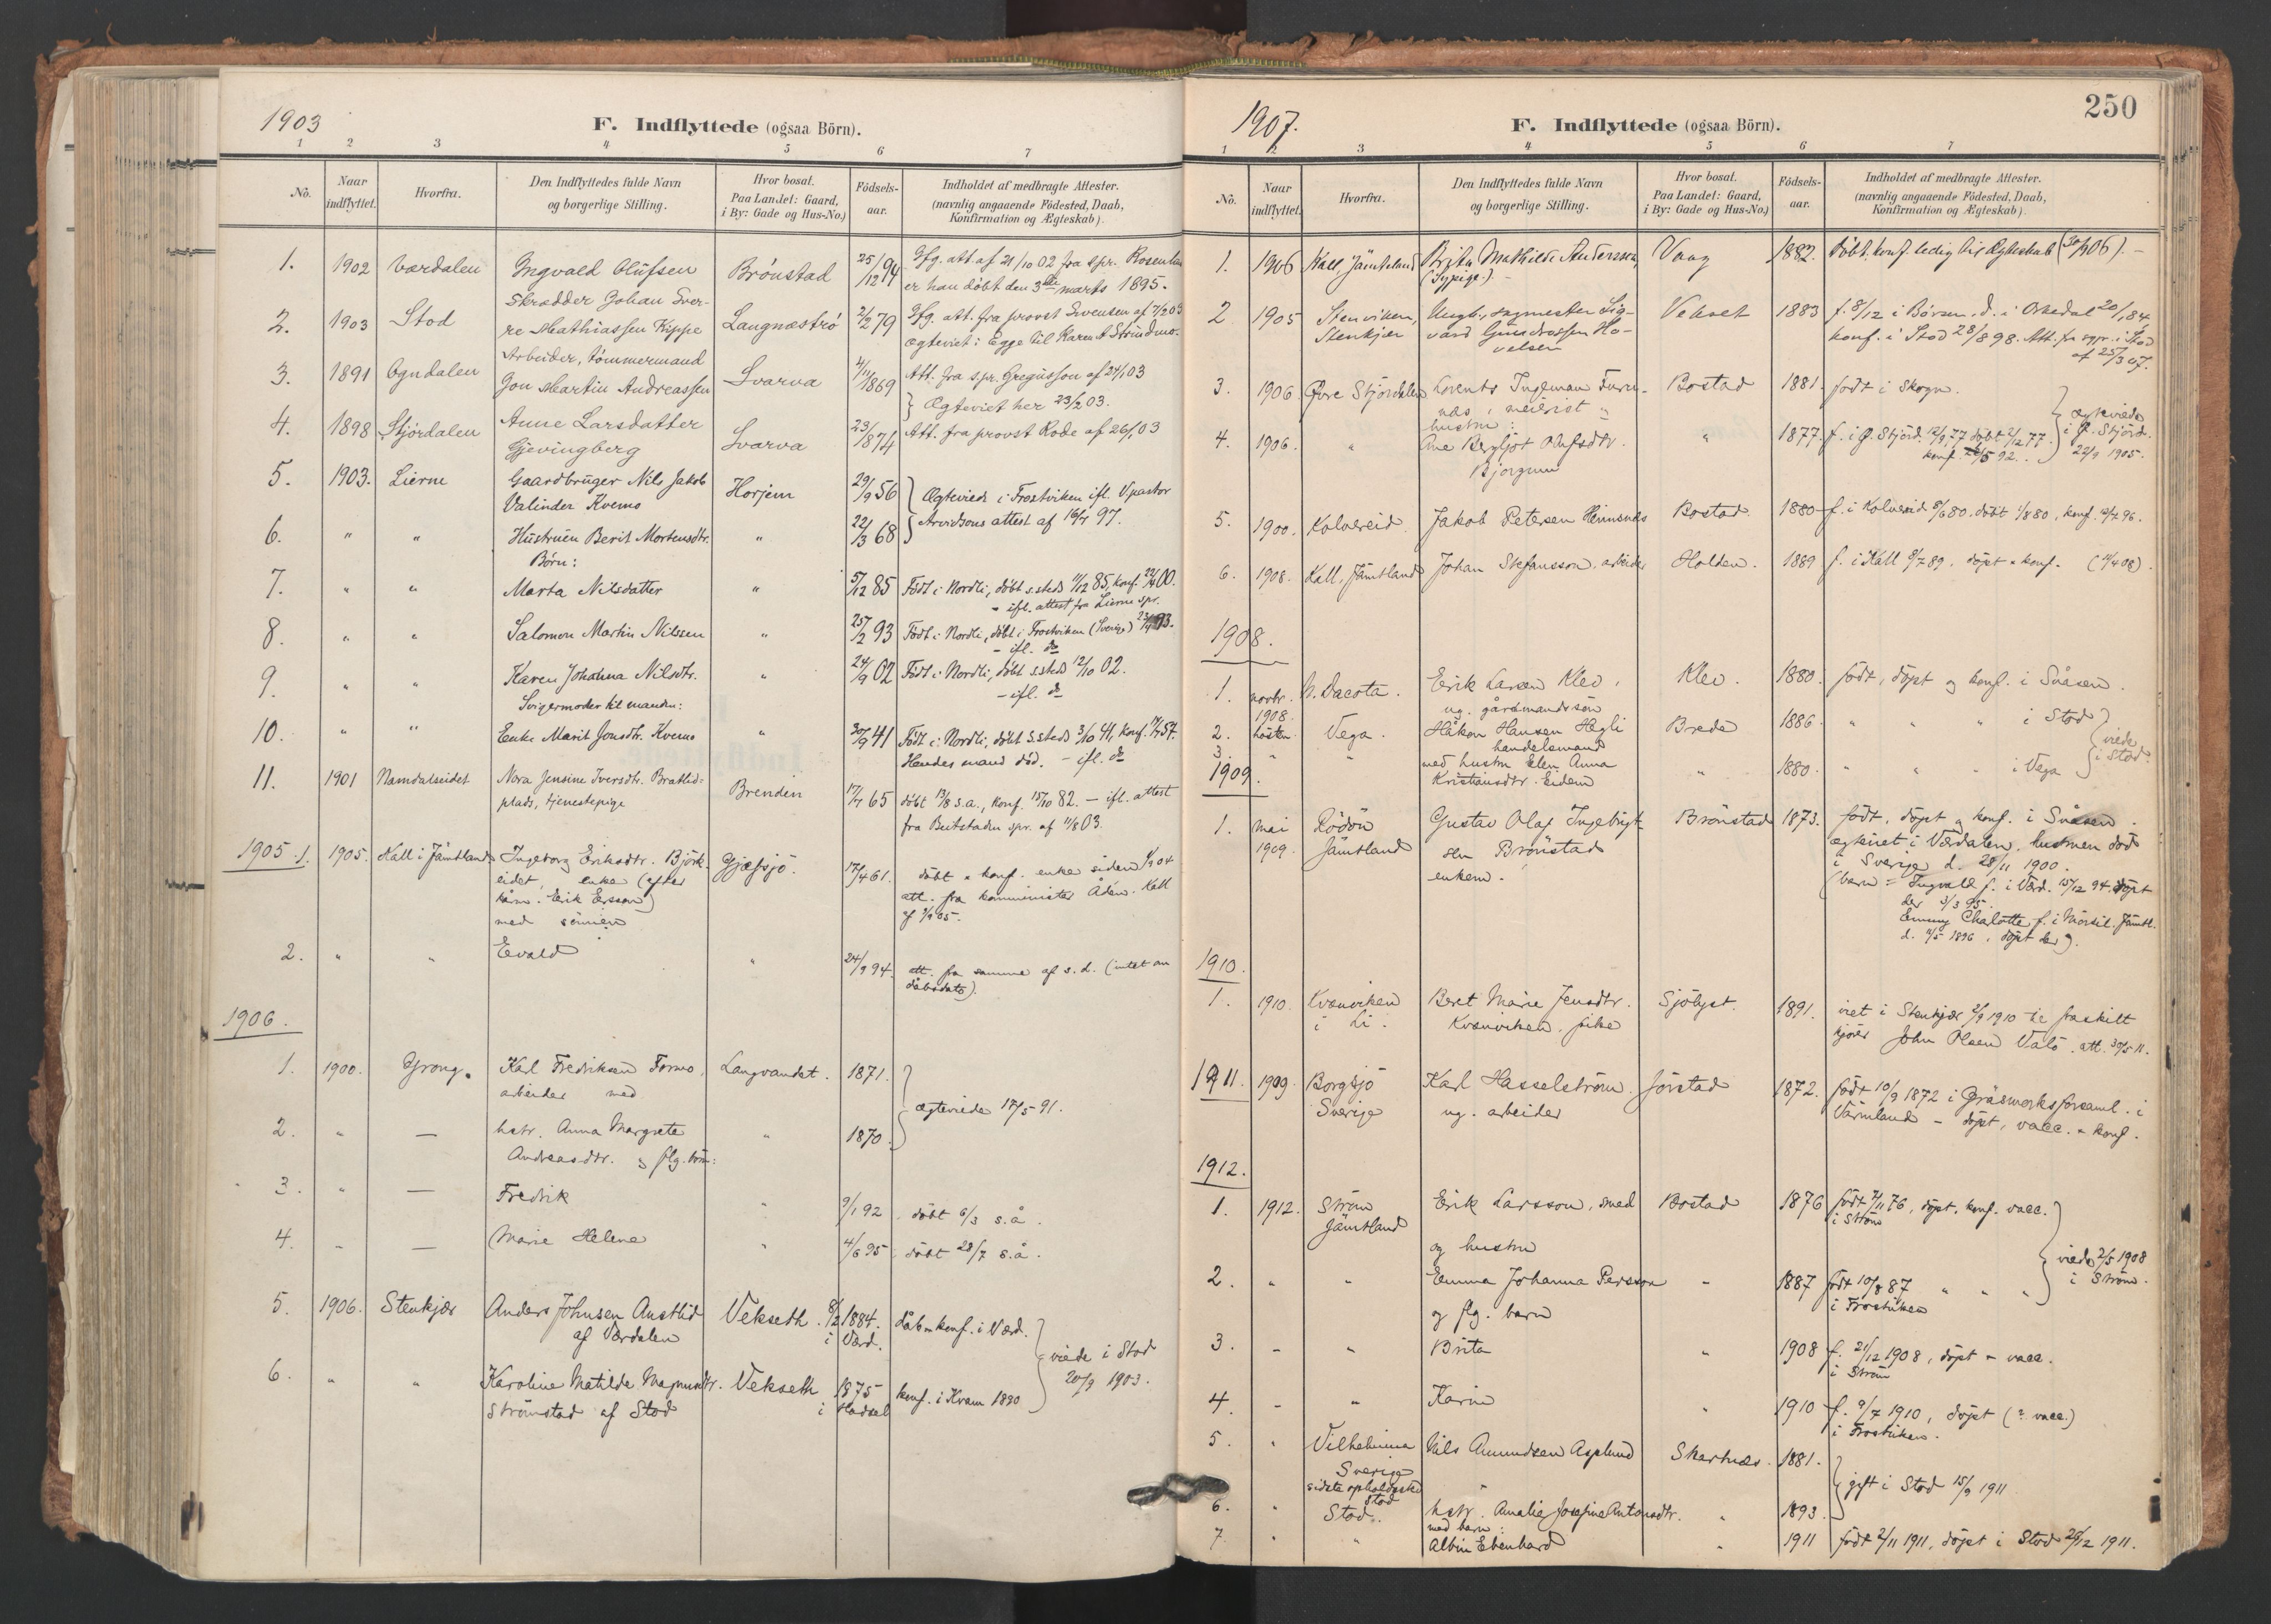 1903
F. Indflyttede (ogsaa Börn).
1 2 3 4 5 6 7
No. Naar indflyttet. Hvorfra. Den Indflyttedes fulde Navn og borgerlige Stilling. Hvor bosat. Paa Landet: Gaard, i By: Gade og Hus-No.) Födsels-aar. Indholdet af medbragte Attester. (navnlig angaaende Födested, Daab, Konfirmation og Ægteskab).
1. 1902 Værdalen Ingvald Olufsen Brönstad 25/12 94 Gfg. att. af 21/10 02 fra spr.
er han döbt den 3die marts 1895.
2. 1903 Stod Skrædder Johan Sver-
re Mathiassen Kippe Langnæströ 2/2 79 Gfg. att. fra provst Svensen af 7/2 03
ægteviet i Egge til Karen A Strindmo.
3. 1891 Ogndalen Arbeider, tömmermand
Jon Martin Andreassen Svarva 4/11 1869 Att. fra spr. Gregusson af 24/1 03
} Ægteviet her 23/2 03.
4. 1898 Stjördalen Anne Larsdatter
Gjevingberg Svarva 23/8 74 Att. fra provst Rode af 26/1 03
5. 1903. Lierne Gaardbruger Nils Jakob
Valinder Kvemo Horjem 29/9 56 } Ægteviede i Frostviken ifl. Vpastor
6. " " Hustruen Berit Mortensdtr. " 22/3 68 } Arvidsons attest af 16/7 97.
Börn:
7. " " Marta Nilsdatter " 5/12 85 Födt i Nordli, döbt s.steds 11/12 85, konf. 00.
- ifl. attest fra Lierne spr.
8. " " Salomon Martin Nilssen " 25/2 93 Födt i Nordli, döbt i Frostviken (Sverige) 93.
- ifl. do
9. " " Karen Johanna Nilsdtr. " 24/9 02 Födt i Nordli, döbt s.steds 12/10 02.
- ifl. do
Svigermoder til manden:
10. " " Enke Marit Jonsdtr. Kvemo " 30/9 41 Födt i Nordli, döbt s.steds 3/10 41, konf. 57.
Hendes mand död. - ifl. do
11. 1901 Namdalseidet Nora Jensine Iversdtr. Bratlid-
plads, tjenestepige Brenden 17/7 65 döbt 13/8 s.a., konf. 15/10 82. - ifl. attest
fra Beitstaden spr. af 11/8 03.
1905. 1. 1905. Kall i Jämtland Ingeborg Eriksdtr. Björk-
eidet, enke (efter Gjæfsjö. 17/4 61. döbt & konf. enke siden 04
Erik Ersson) att. fra komminister Åden. Kall
med sönnen af 65.
2. " " Evald " 24/9 94. att. fra samme af s.d. (intet om
dåbsdato).
1906.
1. 1900. Grong. Karl Fredriksen Formo, Langvandet. 1871.
arbeider med } ægteviede 17/5 91.
2. " — hstr. Anna Margrete " 1870.
Andreasdtr. & flg. börn:
3. " — Fredrik " 9/1 92. döbt 6/3 s.å.
4. " — Marie Helene " 4/6 95. döbt 28/7 s.å.
5. 1906. Stenkjær Anders Johnsen Austlid Vekseth. 8/2 1884. dåb & konf. i Værd.
af Værdalen i Værd. } viede i Stod
6. " " Karoline Matilde Magnusdtr. Vekseth 1875 konf. i Kvam 1890 20/9 1903.
Strömstad af Stod i Hadsel
1907.
F. Indflyttede (ogsaa Börn). 250
1 2 3 4 5 6 7
No. Naar indflyttet. Hvorfra. Den Indflyttedes fulde Navn og borgerlige Stilling. Hvor bosat. Paa Landet: Gaard, i By: Gade og Hus-No.) Födsels-aar. Indholdet af medbragte Attester. (navnlig angaaende Födested, Daab, Konfirmation og Ægteskab).
1. 1906 Kall, Jämtland Brita Mathilda Andersson, Vaag 1882. Döbt, konf. ledig til Ægteskab (30/1 06). -
(Sypige). -
2. 1905 Stenviken, Ungk., sagmester Sig- Vekset 1883 f. 8/12 i Börsen, d. i Orkedal 20/1 84
Stenkjær vard Gundrossen Ho- konf. i Stod 28/8 98. Att. fra spr. i Stod
velsen af 25/3 07.
3. 1906. Övre Stjördalen Lorents Ingeman Furu- Bostad 1881. födt i Skogn.
næs, meierist & } ægteviede
hustru:
4. 1906. " Ane Bergljot Olufsdtr. " 1877. f. i Ö. Stjörd. 12/9 77 döbt 2/12 77. i Ö. Stjörd.
Bjorgum konf. 92. 22/9 1905.
5. 1900. Kolvereid Jakob Petersen Heimsnes Bostad 1880 f. i Kolvereid 5/6 80. döbt 1/8 80, konf. 12/7 96.
6. 1908. Kall, Jämtland Johan Stefansson, arbeider Holden. 1889 f. i Kall 9/7 89. döpt & konf. (14/4 08).
1908.
1. novbr. 1908. N. Dacota. Erik Larsen Kleo, Kleo. 1880. födt, döpt og konf. i Snåsen.
ug. gårdmandssön
2. hösten Vega. Håkon Hansen Hegli Brede 1886. " " " i Stod } viede
handelsmand
3. " " med hustru Elen Anna i Stod.
Kristiansdtr. Eidem " 1880. " " " i Vega
1909.
1. mai Rödön Gustav Olaf Ingebrigt- Brönstad 1873. födt, döpt & konf. i Snåsen.
1909. Jämtland sen Brönstad ægteviet i Værdalen, hustruen död
enkem. i Sverige d. 28/11 1900.
(barn = Ingvald f. i Værd. 15/12 94. döpt
der 3/3 95.
Emmy Charlotte f. i Mörsil. Jämtl.
d. 4/5 1896, döpt der).
1910.
1. 1910. Kvænviken Beret Marie Jensdtr. Sjölyst. 1891. viet i Stenkjær 2/9 1910 til fraskilt
i Li. Kvænviken, pike kjörer John Olsen Valö. att. 30/5 11.
1911. 1909. Borgsjö Karl Hasselström. Jörstad 1872. födt 10/9 1872 i Gräsmarks forsaml. i
Sverige ug. arbeider Värmland - döpt, vacc. & konf.
1912.
1. 1912. Ström Erik Larsson, smed Bostad 1876 födt 7/11 76, döpt, konf. vacc.
Jämtland i Ström
og hustru } viede 2/5 1908
2. " " Emma Johanna Persson " 1887 födt 10/8 87 " " " i Ström.
og flg. barn i Frostviken
3. " " Brita " 1908 f. 21/12 1908, döpt & vacc.
i Ström
4. " " Karin " 1910 f. 9/7 1910, döpt (? vacc.)
i Frostviken.
5. " Vilhelmina Nils Amundsen Asplund Skarhnæs. 1881.
Sverige } gift i Stod 15/9 1911
sidste opholdssted
Stod
6. " Stod. hstr. Amalie Josefine Antonsdtr. " 1893.
med barn:
7. " " Albin Ebenhard " 1911 födt 2/11 1911, döpt i Stod 26/12 1911.